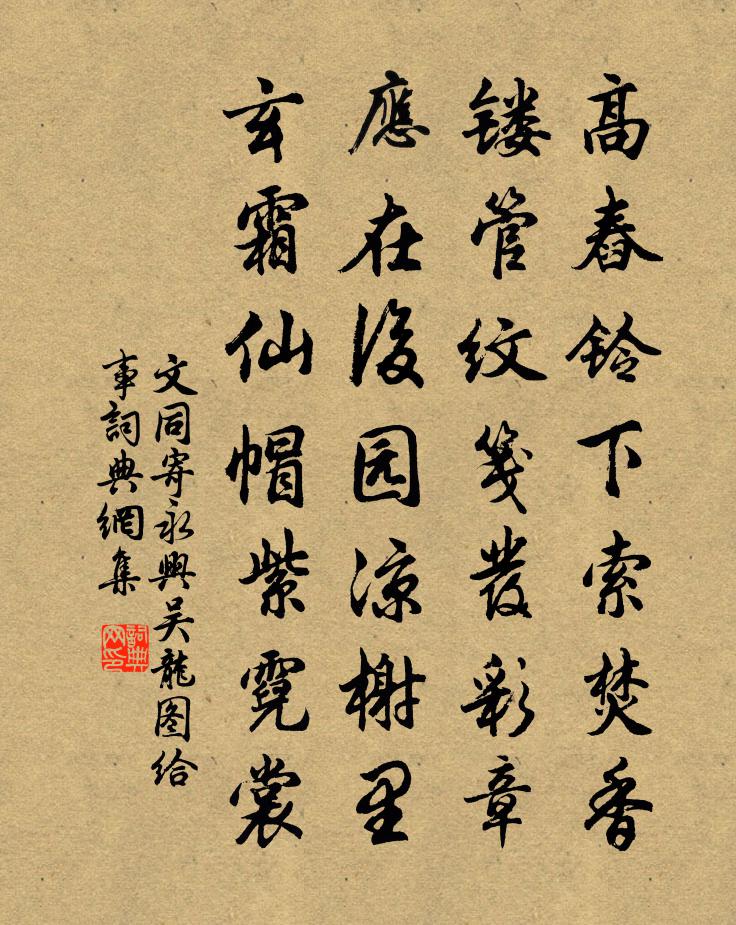 高舂铃下索焚香
镂管纹笺發彩章
應在後园凉榭里
玄霜仙帽紫霓裳
文同寄永興吴龍图给
事詞典網集
詞典网印